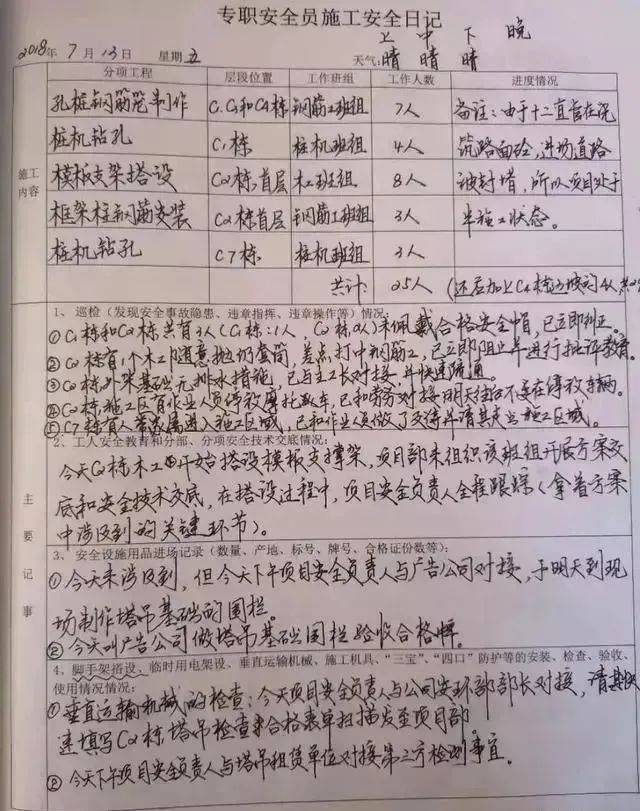 专职安全员施工安全日记
上 中 下 晚
2018年 7月 13日 星期五 天气: 晴 晴 晴
分项工程 层段位置 工作班组 工作人数 进度情况
孔桩钢筋笼制作 钢筋工班组 7人 备注:由于十二直管在浇
桩机钻孔 C1栋 桩机班组 4人 筑路面砼,进场道路
施工内容 模板支架搭设 C2栋首层 木工班组 8人 被封堵,所以项目处于
框架柱钢筋安装 C2栋首层 钢筋工班组 3人 半施工状态。
桩机钻孔 C7栋 桩机班组 3人
共计: 25人
主要记事
1、巡检(发现安全事故隐患、违章指挥、违章操作等)情况:
①C1栋和C2栋共有3人(C1栋:1人,C2栋2人)未佩戴合格安全帽,已立即纠正。
②C2栋有1个木工随意抛扔套筒,差点打中钢筋工,已立即阻止并进行批评教育。
③C2栋外架基础无排水措施,已与工长对接,并快速疏通。
④C2栋施工区有作业人员停放摩托车,已和劳务对接明天往后不要在停放车辆。
⑤C7栋有人带家属进入施工区域,已和作业人员做了交待并请其走出施工区域。
2、工人安全教育和分部、分项安全技术交底情况:
今天C2栋木工开始搭设模板支撑架,项目部未组织该班组开展方案交
底和安全技术交底,在搭设过程中,项目安全负责人全程跟踪(拿着方案
中涉及到的关键环节)。
3、安全设施用品进场记录(数量、产地、标号、牌号、合格证份数等):
①今天未涉及到,但今天下午项目安全负责人与广告公司对接,于明天到现
场制作塔吊基础的围栏。
②今天叫广告公司做塔吊基础围栏验收合格牌。
4、脚手架搭设、临时用电架设、垂直运输机械、施工机具、“三宝”、“四口”防护等的安装、检查、验收、
使用情况情况:
①垂直运输机械的检查:今天项目安全负责人与公司安环部部长对接,请其快
速填写C2栋塔吊检查合格表单扫描发至项目部
②今天下午项目安全负责人与塔吊租赁单位对接第三方检测事宜。